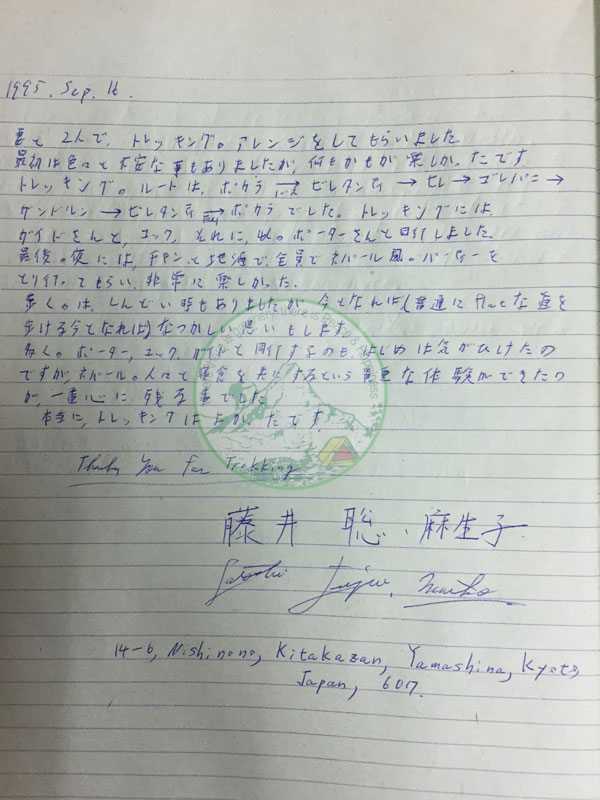 1995. Sep. 16.
妻と 2人で、トレッキングのアレンジをしてもらいました。
最初は色々と不安な事もありましたが、何もかもが楽しかったです。
トレッキングのルートは、ポカラ → ビレタンティ → ヒレ → ゴレパニ →
ガンドルン → ビレタンティ → ポカラ でした。トレッキングには、
ガイドさんと、コック、それに、4人のポーターさんと同行しました。
最後の夜には、チキンと地酒で、全員でネパール風のパーティーを
とり行ってもらい、非常に楽しかった。
歩くのは、しんどい時もありましたが、今となれば(普通にflatな道を
歩ける今となれば)なつかしい思いもします。
多くのポーター、コック、ガイドと同行するのも、はじめは気がひけたの
ですが、ネパールの人々と寝食を共にするという貴重な体験ができたの
が、一番心に残る事でした。
本当に、トレッキングはよかったです。
Thank You For Trekking
藤井 聡、麻生子
Satoshi Fujii,
14-6, Nishinono, Kitakazan, Yamashina, Kyoto
Japan, 607.